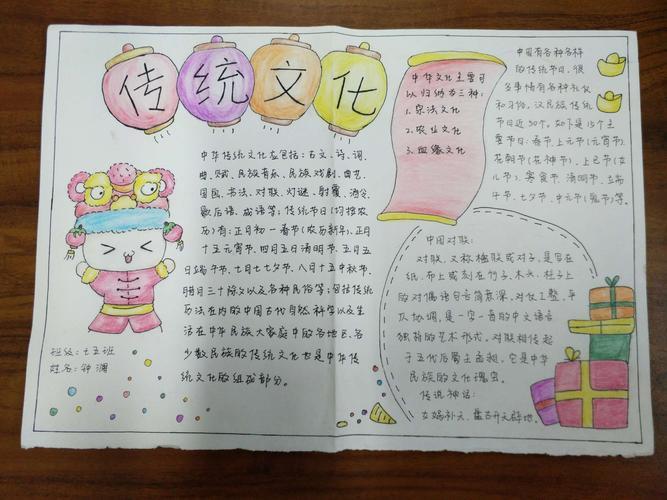 传统文化
中华传统文化应包括：古文、诗、词、
曲、赋、民族音乐、民族戏剧、曲艺、
国画、书法、对联、灯谜、射覆、酒令、
歇后语、成语等；传统节日（均按农
历）有：正月初一春节（农历新年）、正月
十五元宵节、四月五日清明节、五月五
日端午节、七月七七夕节、八月十五中秋节、
腊月三十除夕以及各种民俗等；包括传统
历法在内的中国古代自然科学以及生
活在中华民族大家庭中的各地区、各
少数民族的传统文化也是中华传
统文化的组成部分。
班级：七五班
姓名：钟
中华文化主要可
以归纳为三种：
1.宗法文化
2.农业文化
3.血缘文化
中国有各种各样
的传统节日，很
多事情有各种礼仪
和习俗。汉民族传统
节日近50个。如下是15个主
要节日：春节、上元节（元宵节）、
花朝节（花神节）、上巳节（女
儿节）、寒食节、清明节、立
午节、七夕节、中元节（鬼节）等。
中国对联：
对联，又称楹联或对子，是写在
纸、布上或刻在竹子、木头、柱子上
的对偶语句言简意深，对仗工整，平
仄协调，是一字一音的中文语言
独特的艺术形式。对联相传起
于五代后蜀主孟昶。它是中华
民族的文化瑰宝。
传说神话：
女娲补天、盘古开天辟地。